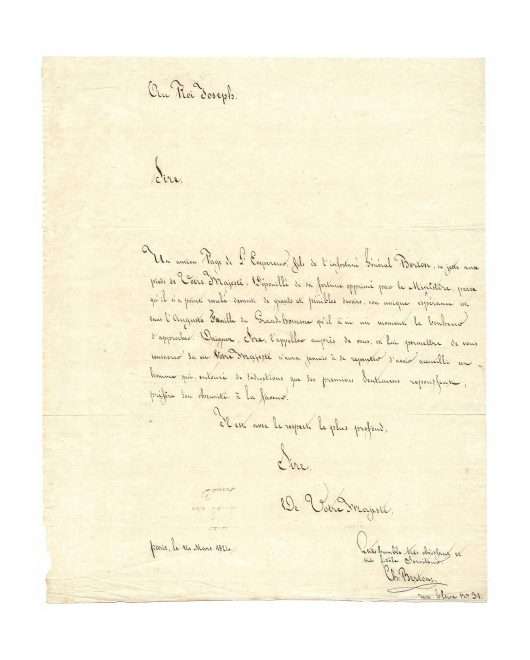 Au Roi Joseph.
Sire.
Un ancien Page de l'Empereur, fils de l'infortuné Général Berton, se jette aux
pieds de Votre Majesté. Dépouillé de sa fortune opprimé par le Ministère, parce
qu'il n'a point voulu de grands et pénibles devoirs, son unique espérance est
dans l'Auguste famille du Grand homme qu'il a eu un moment le bonheur
d'approcher. Daignez, Sire, l'appeler auprès de vous, et lui permettre de vous
sa vie Votre Majesté n'aura jamais à se repentir d'avoir accueilli un
homme qui, entouré de séductions que ses premiers sentiments repoussent,
préfère son obscurité à la faveur.
Il est avec le respect le plus profond,
Sire,
De Votre Majesté,
Paris, le Mars
Le très humble très obéissant et
très fidèle Serviteur
Ch. Berton
rue bleue no